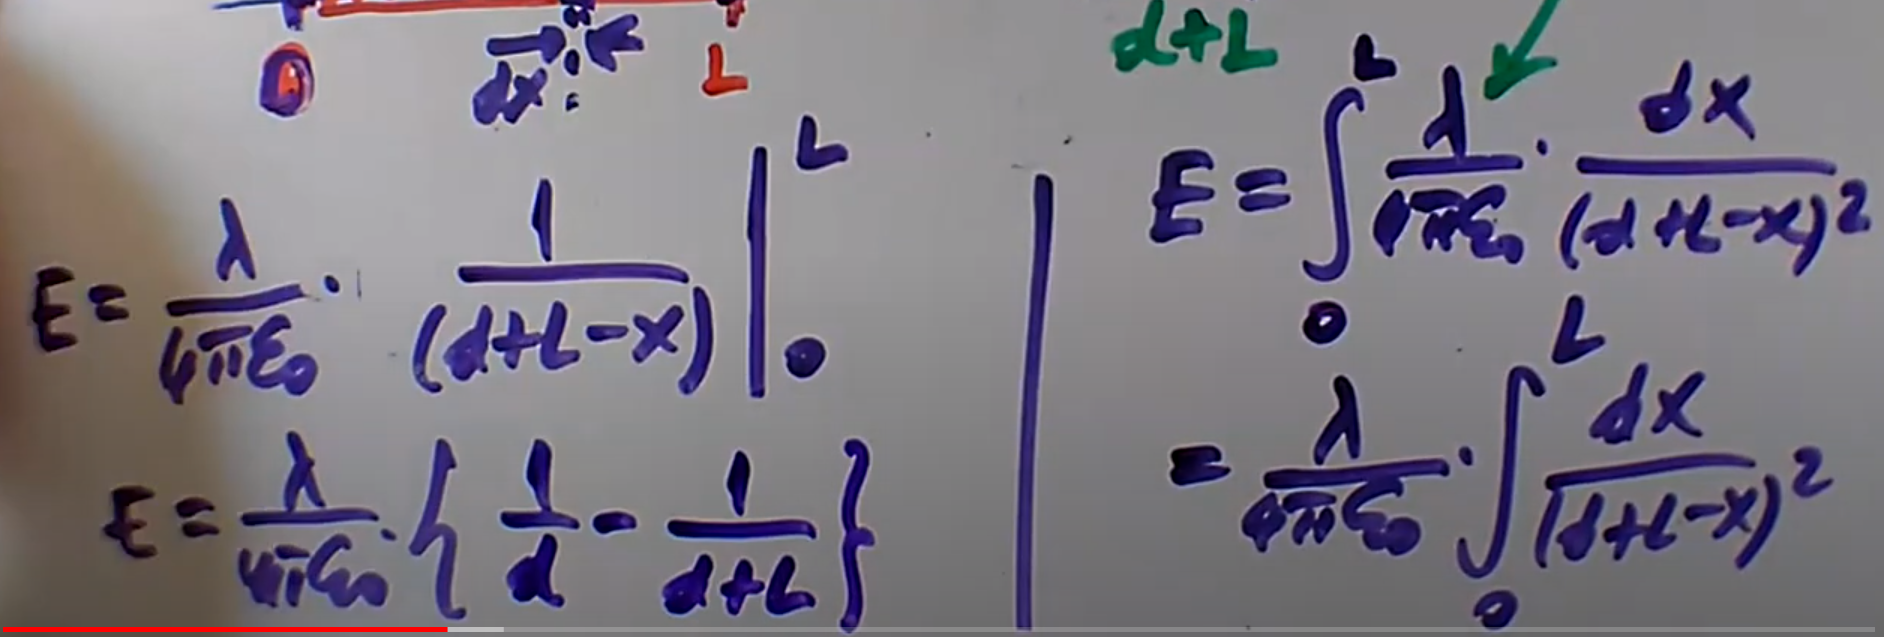 0 dx L
E = λ/4πε₀ · 1/(d+L-x) |₀ᴸ
E = λ/4πε₀ · { 1/d - 1/d+L }
d+L
E = ∫₀ᴸ λ/4πε₀ · dx/(d+L-x)²
= λ/4πε₀ · ∫₀ᴸ dx/(d+L-x)²